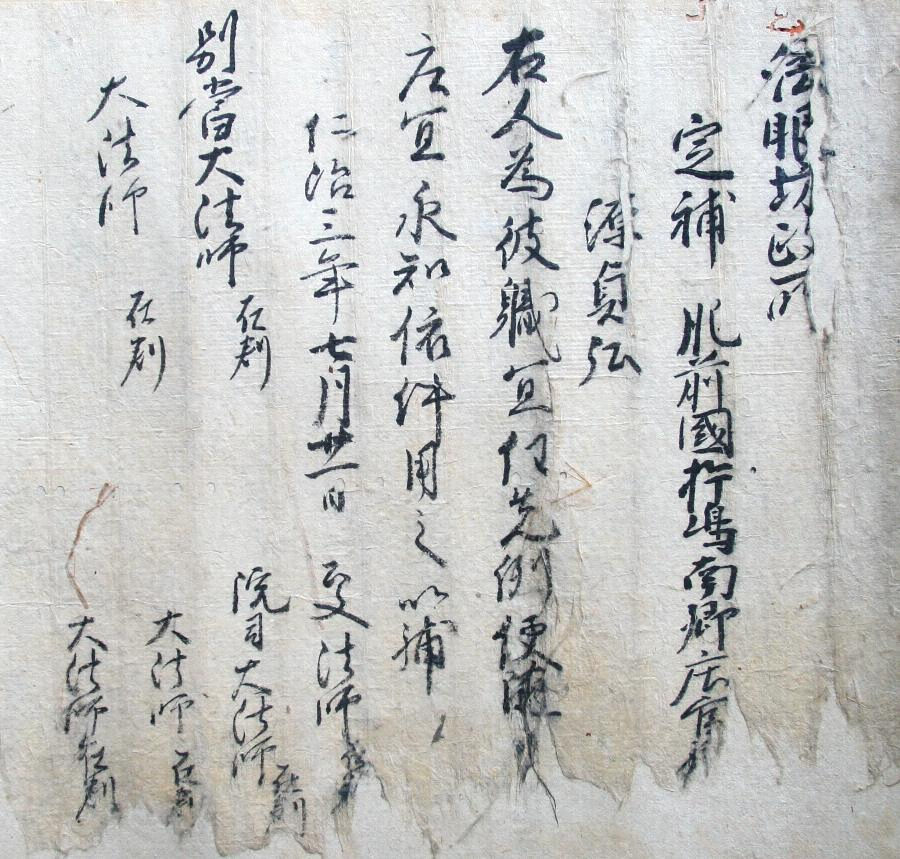 法眼坊政所
定補 肥前國杵嶋南郷庄官
源貞弘
右人為彼職宜任先例使
庄宜承知依件用之以補
仁治三年七月廿一日 法師
院司大法師 在判
別當大法師 在判
大法師
大法師 在判
大法師 在判